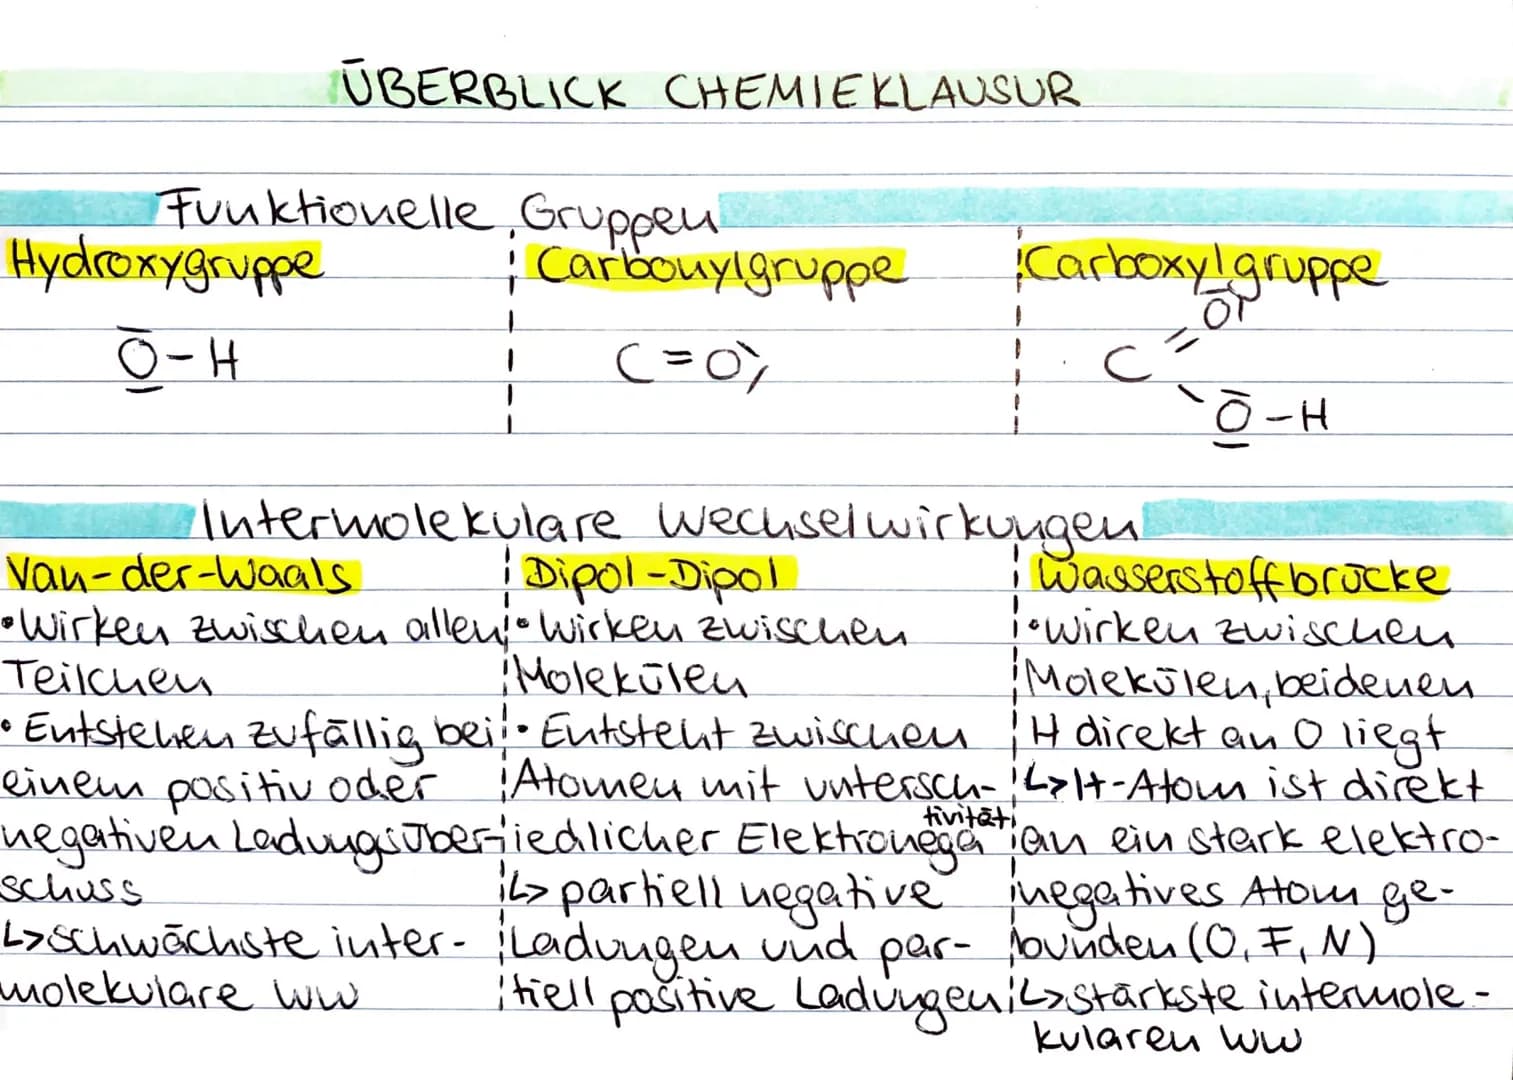 ÜBERBLICK CHEMIEKLAUSUR
Funktionelle Gruppen
Hydroxygruppe
O-H
Carbonylgruppe
C=O
Carboxylgruppe
O
C
O-H
Intermolekulare Wechselwirkungen
Van-der-Waals
•Wirken zwischen allen
Teilchen
•Entstehen zufällig bei
einem positiv oder
negativen Ladungsüber-
schuss
↳schwächste inter-
molekulare WW
Dipol-Dipol
•Wirken zwischen
Molekülen
•Entsteht zwischen
Atomen mit untersch-
iedlicher Elektronegativität
↳partiell negative
Ladungen und par-
tiell positive Ladungen
Wasserstoffbrücke
•Wirken zwischen
Molekülen, bei denen
H direkt an O liegt
↳H-Atom ist direkt
an ein stark elektro-
negatives Atom ge-
bunden (O, F, N)
↳stärkste intermole-
kularen WW